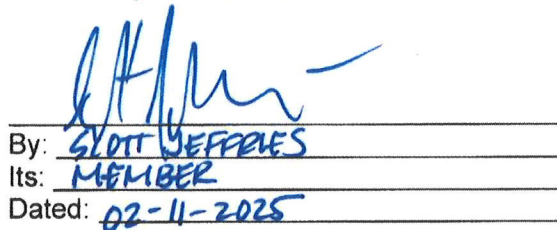 By: SCOTT JEFFRIES
Its: MEMBER
Dated: 02-11-2025